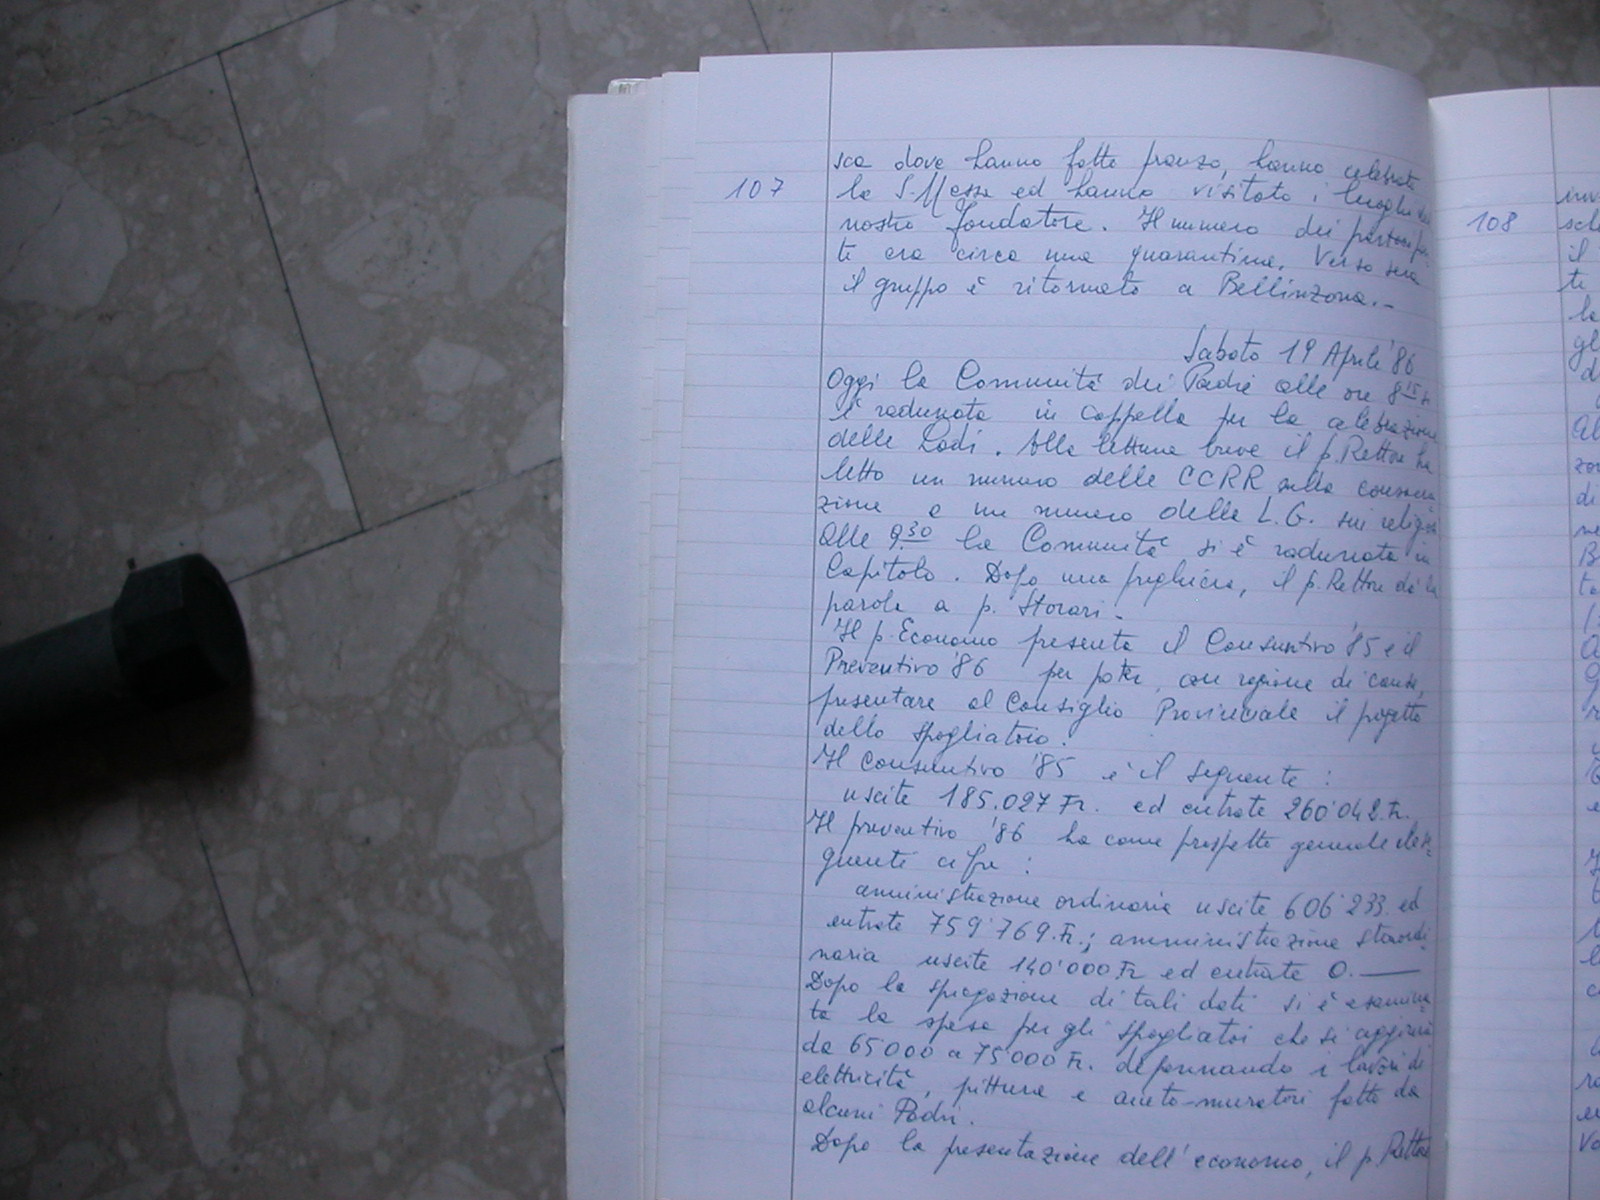 sca dove hanno fatto pranzo, hanno celebrato
107
la S. Messa ed hanno visitato i luoghi del
nostro fondatore. Il numero dei partecipan
ti era circa una quarantina. Verso sera
il gruppo è ritornato a Bellinzona.-
Sabato 19 Aprile '86
Oggi la Comunità dei Padri alle ore 8 15 si
è radunata in cappella per la celebrazione
delle Lodi. Alla lettura breve il p. Rettore ha
letto un numero delle CCRR sulla consacra
zione e un numero delle L.G. sui religiosi
Alle 9.30 la Comunità si è radunata in
Capitolo. Dopo una preghiera, il p. Rettore dà la
parola a p. Storari.
Il p. Economo presenta il Consuntivo '85 e il
Preventivo '86 per poter, con ragione di causa,
presentare al Consiglio Provinciale il progetto
dello spogliatoio.
Il consuntivo '85 è il seguente :
uscite 185.027 Fr. ed entrate 260'042. Fr.
Il preventivo '86 ha come prospetto generale
guente cifre :
amministrazione ordinaria uscite 606'233. ed
entrate 759'769. Fr.; amministrazione straordi
naria uscite 140'000 Fr ed entrate 0. —
Dopo la spiegazione di tali dati si è esamina
ta la spesa per gli spogliatoi che si aggira
da 65'000 a 75'000 Fr. depennando i lavori di
elettricità, pittura e aiuto-muratori fatto da
alcuni Padri.
Dopo la presentazione dell'economo, il p. Rettore
108
il
te
gl
di